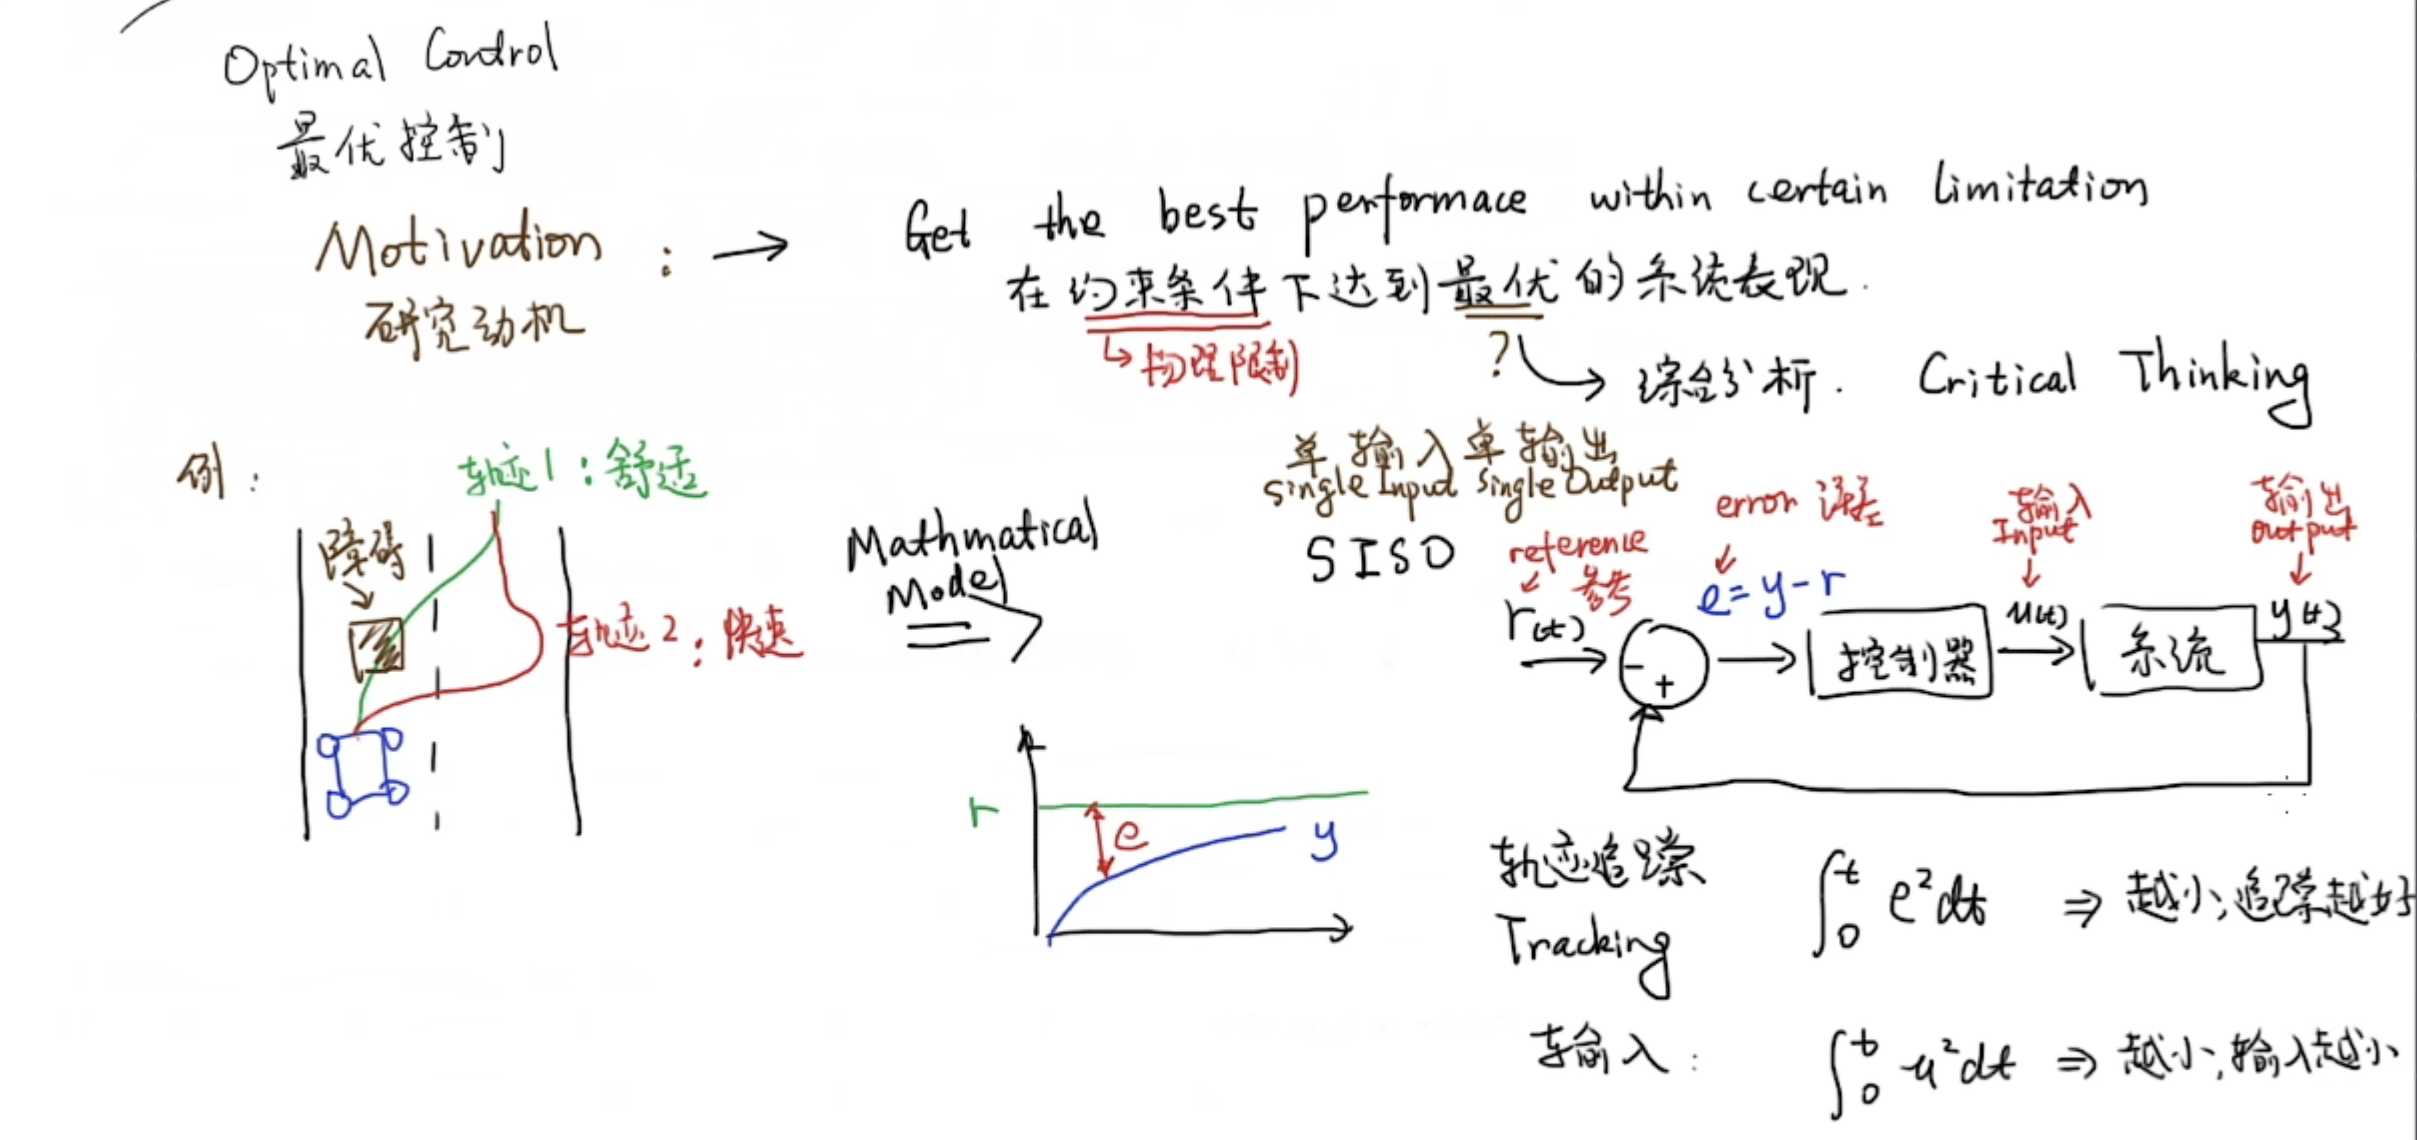 Optimal Control
最优控制
Motivation : →
研究动机
Get the best performace within certain limitation
在约束条件下达到最优的系统表现.
↳物理限制
?
→ 综合分析. Critical Thinking
例:
轨迹1:舒适
障碍
轨迹2:快速
Mathmatical
Model
单输入单输出
Single Input Single Output
SISO
reference
参考
r(t)
error 误差
e=y-r
-
+
控制器
输入
Input
u(t)
系统
输出
output
y(t)
r
e
y
轨迹追踪
Tracking
∫₀ᵗ e²dt ⇒ 越小,追踪越好
输入:
∫₀ᵗ u²dt ⇒ 越小,输入越小